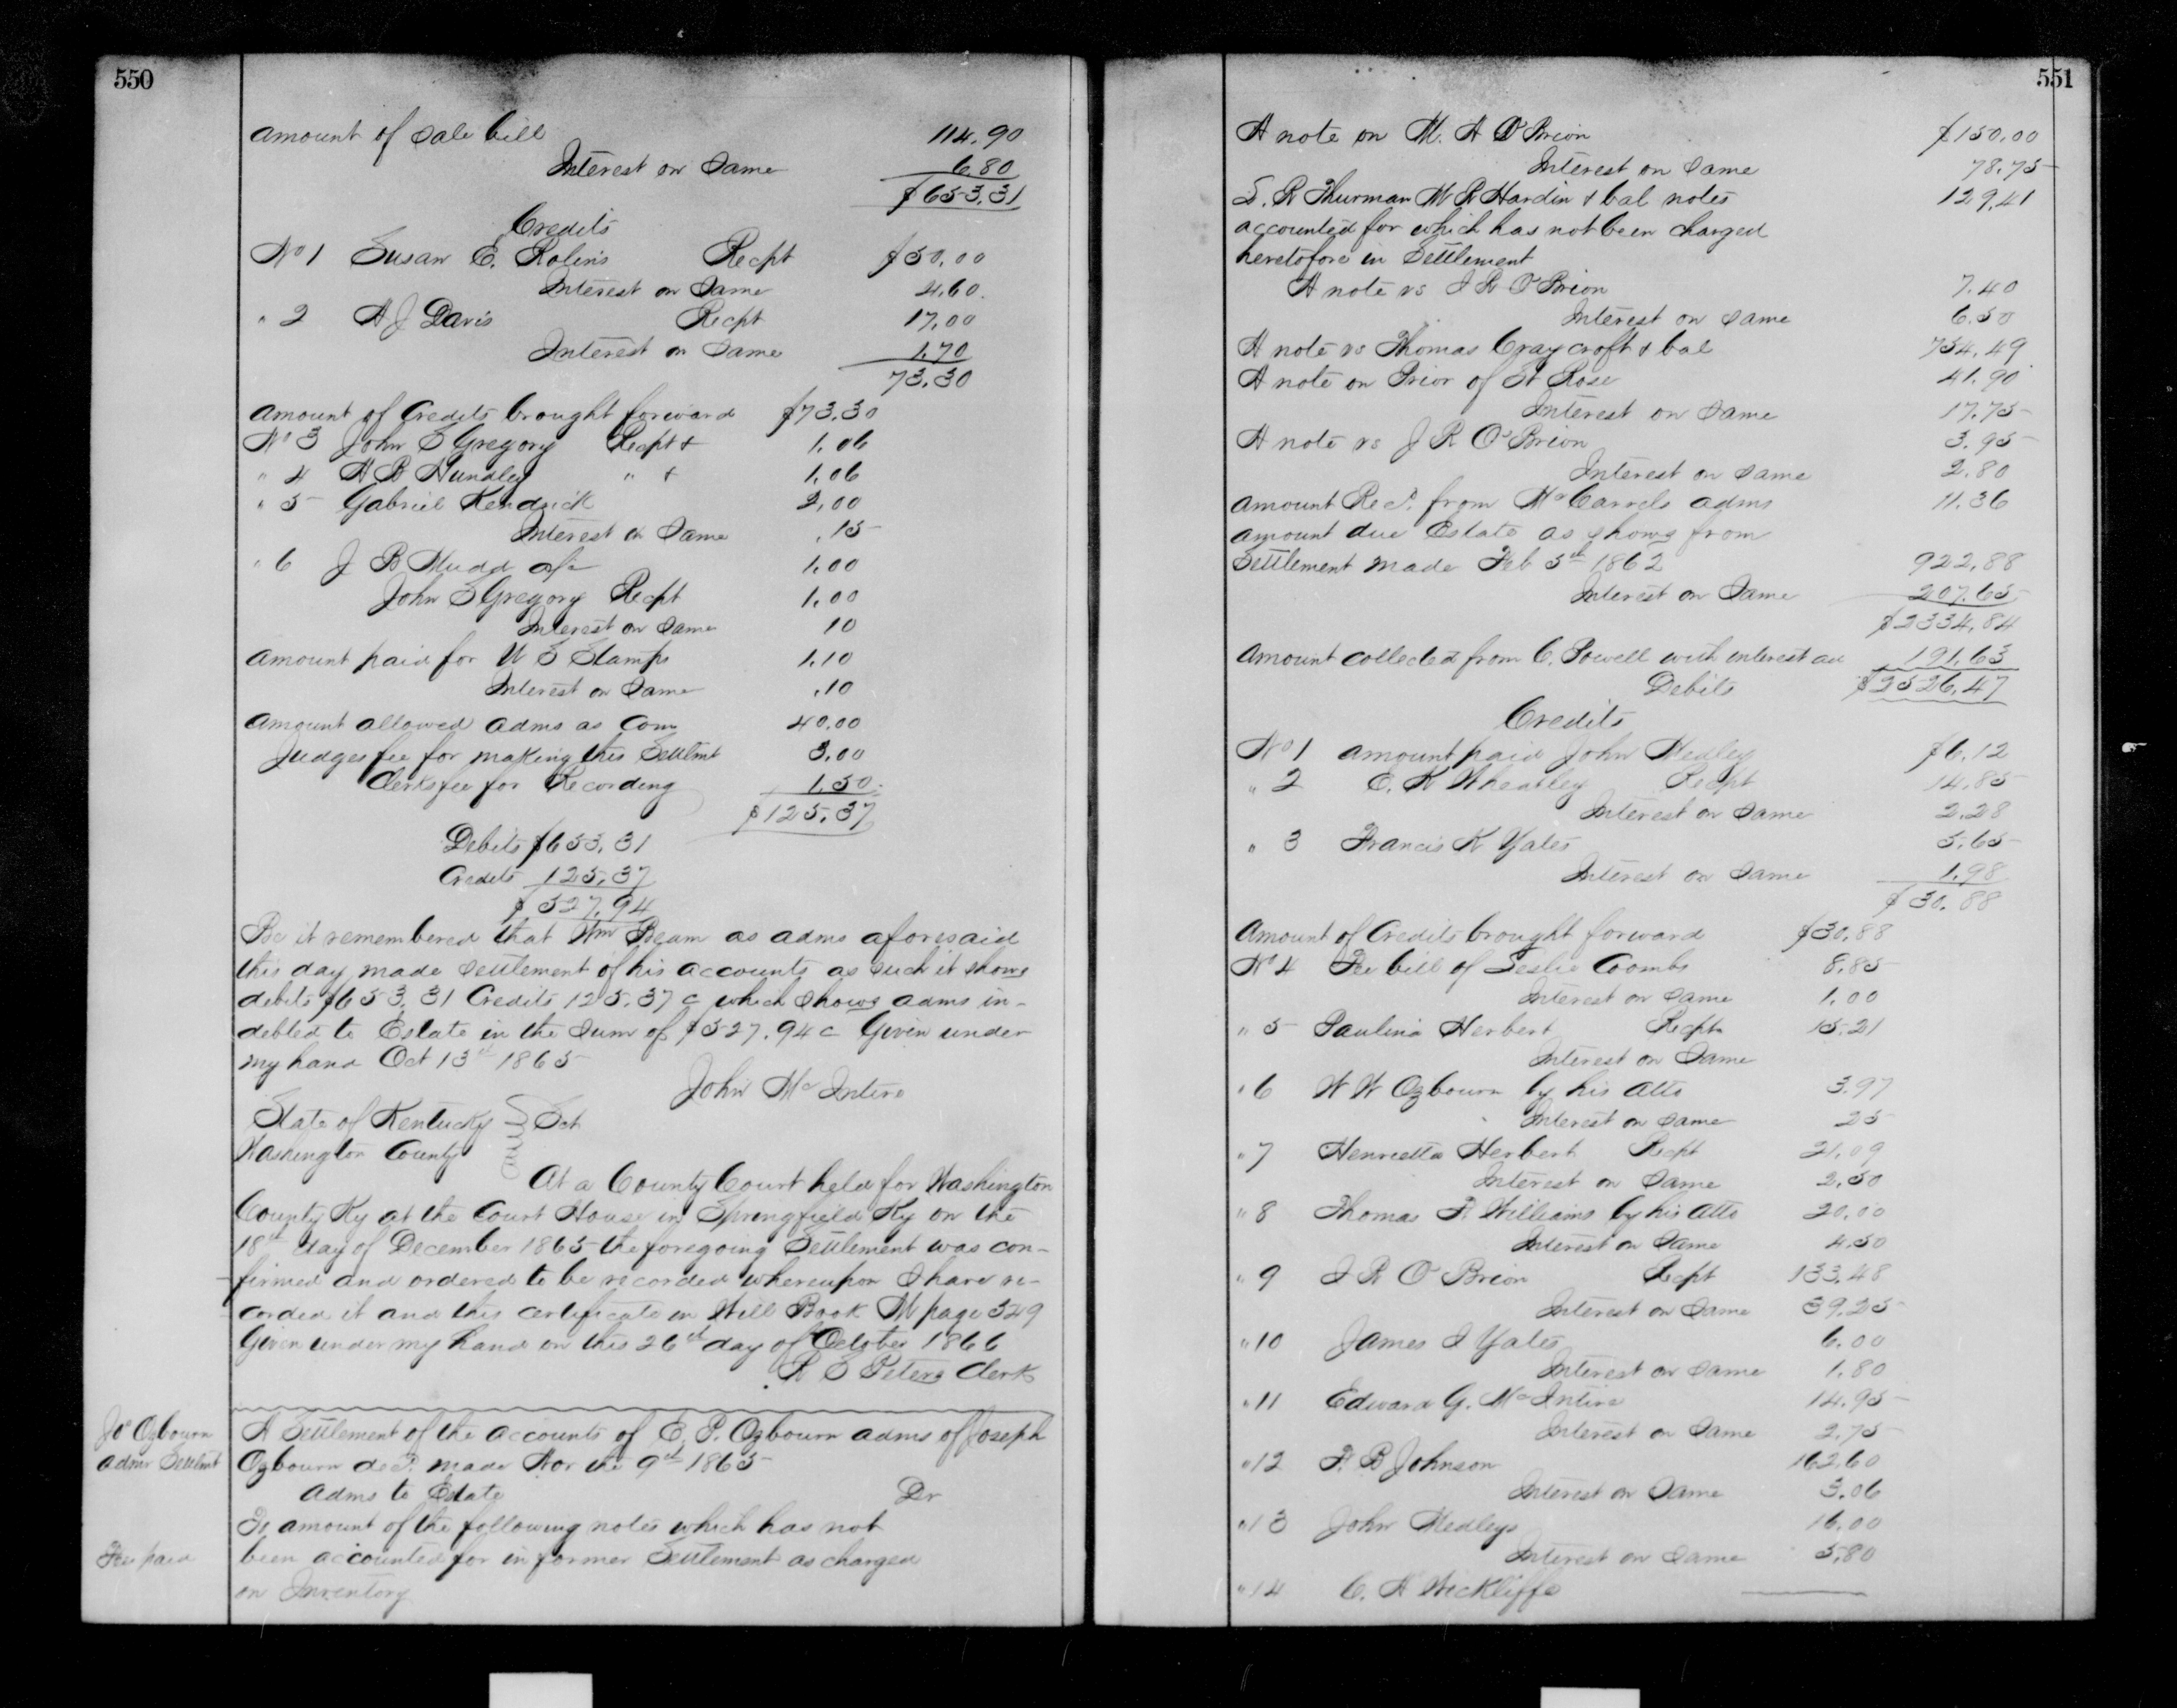 550
amount of Sale bill 114.90
Interest on Same 6.80
$653.31
Credits
No 1 Susan E. Robins Recpt $50.00
Interest on Same 4.60
" 2 A J Davis Recpt 17.00
Interest on Same 1.70
73.30
amount of Credits brought forward $73.30
No 3 John S Gregory Recpt + 1.06
" 4 A B Hundley " + 1.06
" 5 Gabriel Kendrick 2.00
Interest on Same .15
" 6 J B Mudd 1.00
John S Gregory Recpt 1.00
Interest on Same 10
amount paid for U S Stamps 1.10
Interest on Same .10
amount allowed adms as Com 40.00
Judges fee for making this Settlmt 3.00
Clerks fee for Recording 1.50
$125.37
Debits $653.31
Credits 125.37
$527.94
Be it remembered that Wm Beam as adms aforesaid
this day made settlement of his accounts as such it shows
debits $653.31 Credits 125.37 c which shows adms in-
debted to Estate in the Sum of $527.94 c Given under
my hand Oct 13th 1865
John McIntire
State of Kentucky } Sct
Washington County
At a County Court held for Washington
County Ky at the Court House in Springfield Ky on the
18th day of December 1865 the foregoing Settlement was con-
firmed and ordered to be recorded whereupon I have re-
corded it and this certificate in Will Book M page 549
Given under my hand on this 26th day of October 1866
R S Peters Clerk
Jo Ogbourn
admr Settlmt
A Settlement of the accounts of E. P. Ogbourn adms of Joseph
Ogbourn decd. made Nov the 9th 1865
adms to Estate Dr
To amount of the following notes which has not
Fee paid
been accounted for in former Settlement as charged
on Inventory
551
A note on M. A O'Brion $150.00
Interest on Same 78.75
S. R Thurman W R Hardin & bal notes 129.41
accounted for which has not been charged
heretofore in Settlement
A note vs I R O'Brion 7.40
Interest on Same 6.50
A note vs Thomas Craycroft & bal 754.49
A note on Prior of St Rose 41.90
Interest on Same 17.75
A note vs J R O'Brion 3.95
Interest on Same 2.80
amount Recd. from McCarrels adms 11.36
amount due Estate as shows from
Settlement made Feb 5th 1862 922.88
Interest on Same 207.65
$2334.84
Amount collected from C. Powell with interest 191.63
Debits $2526.47
Credits
No 1 amount paid John Medley $6.12
" 2 E. K Wheatley Recpt 14.85
Interest on Same 2.28
" 3 Francis K Yates 5.65
Interest on Same 1.98
$30.88
Amount of Credits brought forward $30.88
No 4 Fee bill of Leslie Coombs 8.85
Interest on Same 1.00
" 5 Paulina Herbert Recpt 15.21
Interest on Same
" 6 W W Ogbourn by his atto 3.97
Interest on Same 25
" 7 Henrietta Herbert Recpt 21.09
Interest on Same 2.50
" 8 Thomas F. Williams by his atto 20.00
Interest on Same 4.50
" 9 I R O'Brion Recpt 133.48
Interest on Same 39.25
" 10 James I Yates 6.00
Interest on Same 1.80
" 11 Edward G. McIntire 14.95
Interest on Same 2.75
" 12 F. B Johnson 162.60
Interest on Same 3.06
" 13 John Medleys 16.00
Interest on Same 5.80
" 14 C. A Wickliffe